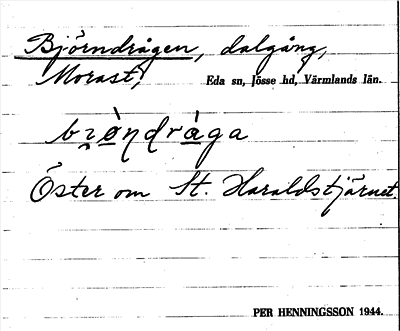 Björndrågen, dalgång,
Morast, Eda sn, Jösse hd, Värmlands län.
bɿø̀ɳdrága
Öster om St. Haraldstjärnet.
PER HENNINGSSON 1944.